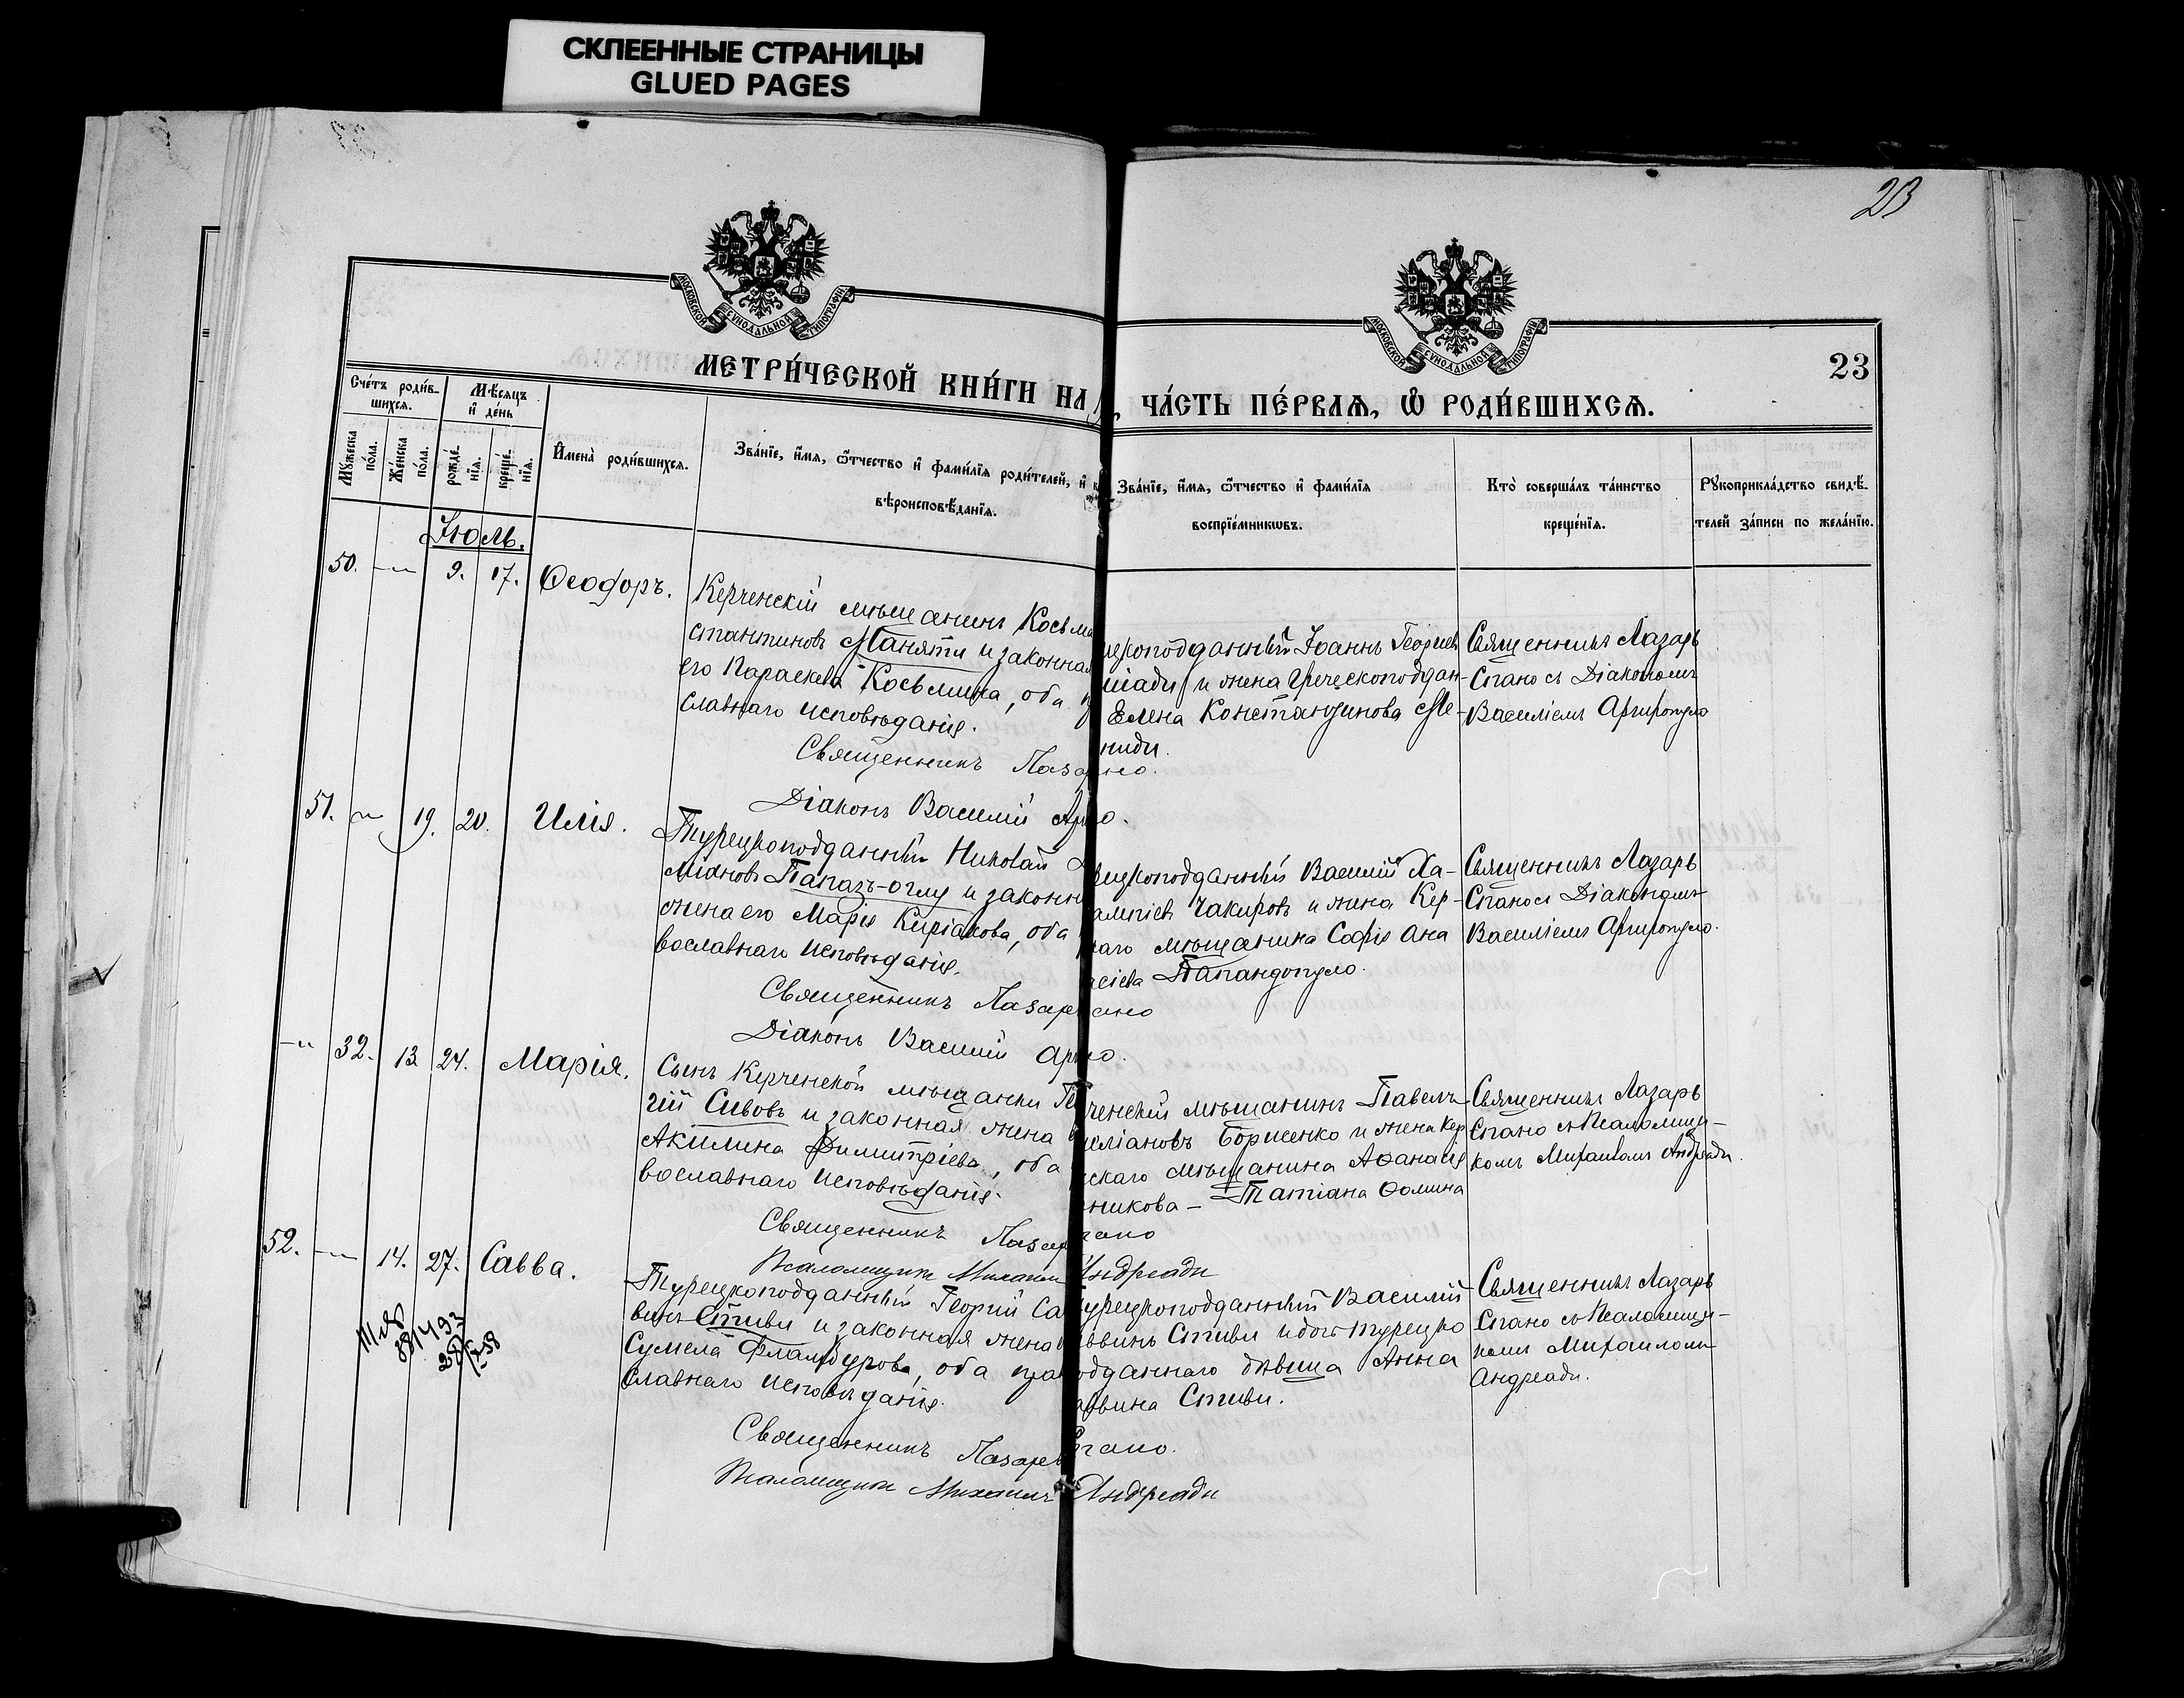 СКЛЕЕННЫЕ СТРАНИЦЫ
GLUED PAGES
23
МОСКОВСКОЙ СУНОДАЛЬНОЙ ТИПОГРАФІИ
МОСКОВСКОЙ СУНОДАЛЬНОЙ ТИПОГРАФІИ
МЕТРИ́ЧЕСКОЙ КНИ́ГИ НА
ЧА́СТЬ ПЕ́РВАЯ, Ѡ РОДИ́ВШИХСЯ.
23
Сче́тъ роди́в-
шихся.
Мꙋжеска по́ла.
Же́нска по́ла.
Мѣ́сяцъ
и де́нь
рожде́нїя.
креще́нїя.
Имена̀ роди́вшихся.
Зва́нїе, и́мя, ѻ҆́тчество и фами́лїя роди́телей, и
вѣроисповѣ́данїя.
Зва́нїе, и́мя, ѻ҆́тчество и фами́лїя
воспрїе́мникѡвъ.
Кто̀ соверша́лъ та́инство
креще́нїя.
Рꙋкоприкла́дство свидѣ́-
телей за́писи по жела́нїю.
Іюль.
50. —„— 9. 17. Ѳеодоръ.
Керченскій мѣщанинъ Косьма
стантиновъ Маняти и законная
его Параскева Косьмина, оба п
славнаго исповѣданія.
Священникъ Лаза
Діаконъ Василій Ар
цкоподданный Іоаннъ Георгіев
шади и жена Греческоподдан-
Елена Константинова Ме-
ниди.
но.
о.
Священникъ Лазарь
Спано съ Діакономъ
Василіемъ Аргиропуло
51. „ 19. 20. Илія.
Турецкоподданный Николай
міановъ Папазъ-оглу и законн
жена его Марія Киріакова, оба
вославнаго исповѣданія.
Священникъ Лазарь
Діаконъ Василій Ар
ецкоподданный Василій Ха-
алпіевъ Чакировъ и жена Кер-
наго мѣщанина Софія Ана
асіева Папандопуло.
ано
о.
Священникъ Лазарь
Спано съ Діакономъ
Василіемъ Аргиропуло.
—„ 32. 13 24. Марія.
Сынъ Керченской мѣщанки Ге
гій Сивовъ и законная жена
Акилина Димитріева, оба
вославнаго исповѣданія.
Священникъ Лазар
Псаломщикъ Михаилъ Андреади
ченскій мѣщанинъ Павелъ
иліановъ Борисенко и жена Кер
скаго мѣщанина Аѳанасія
никова — Татіана Ѳомина
пано
Священникъ Лазарь
Спано съ Псаломщи-
комъ Михаиломъ Андреади.
52. —„— 14. 27. Савва.
Турецкоподданный Георгій Са
винъ Стиви и законная жена
Сумела Фламбурова, оба пра
славнаго исповѣданія.
Священникъ Лазарь Спано.
Псаломщикъ Михаилъ Андреади
урецкоподданный Василій
аввинъ Стиви и дочь турецко
одданнаго дѣвица Анна
аввина Стиви.
Священникъ Лазарь
Спано съ Псаломщи-
комъ Михаиломъ
Андреади.